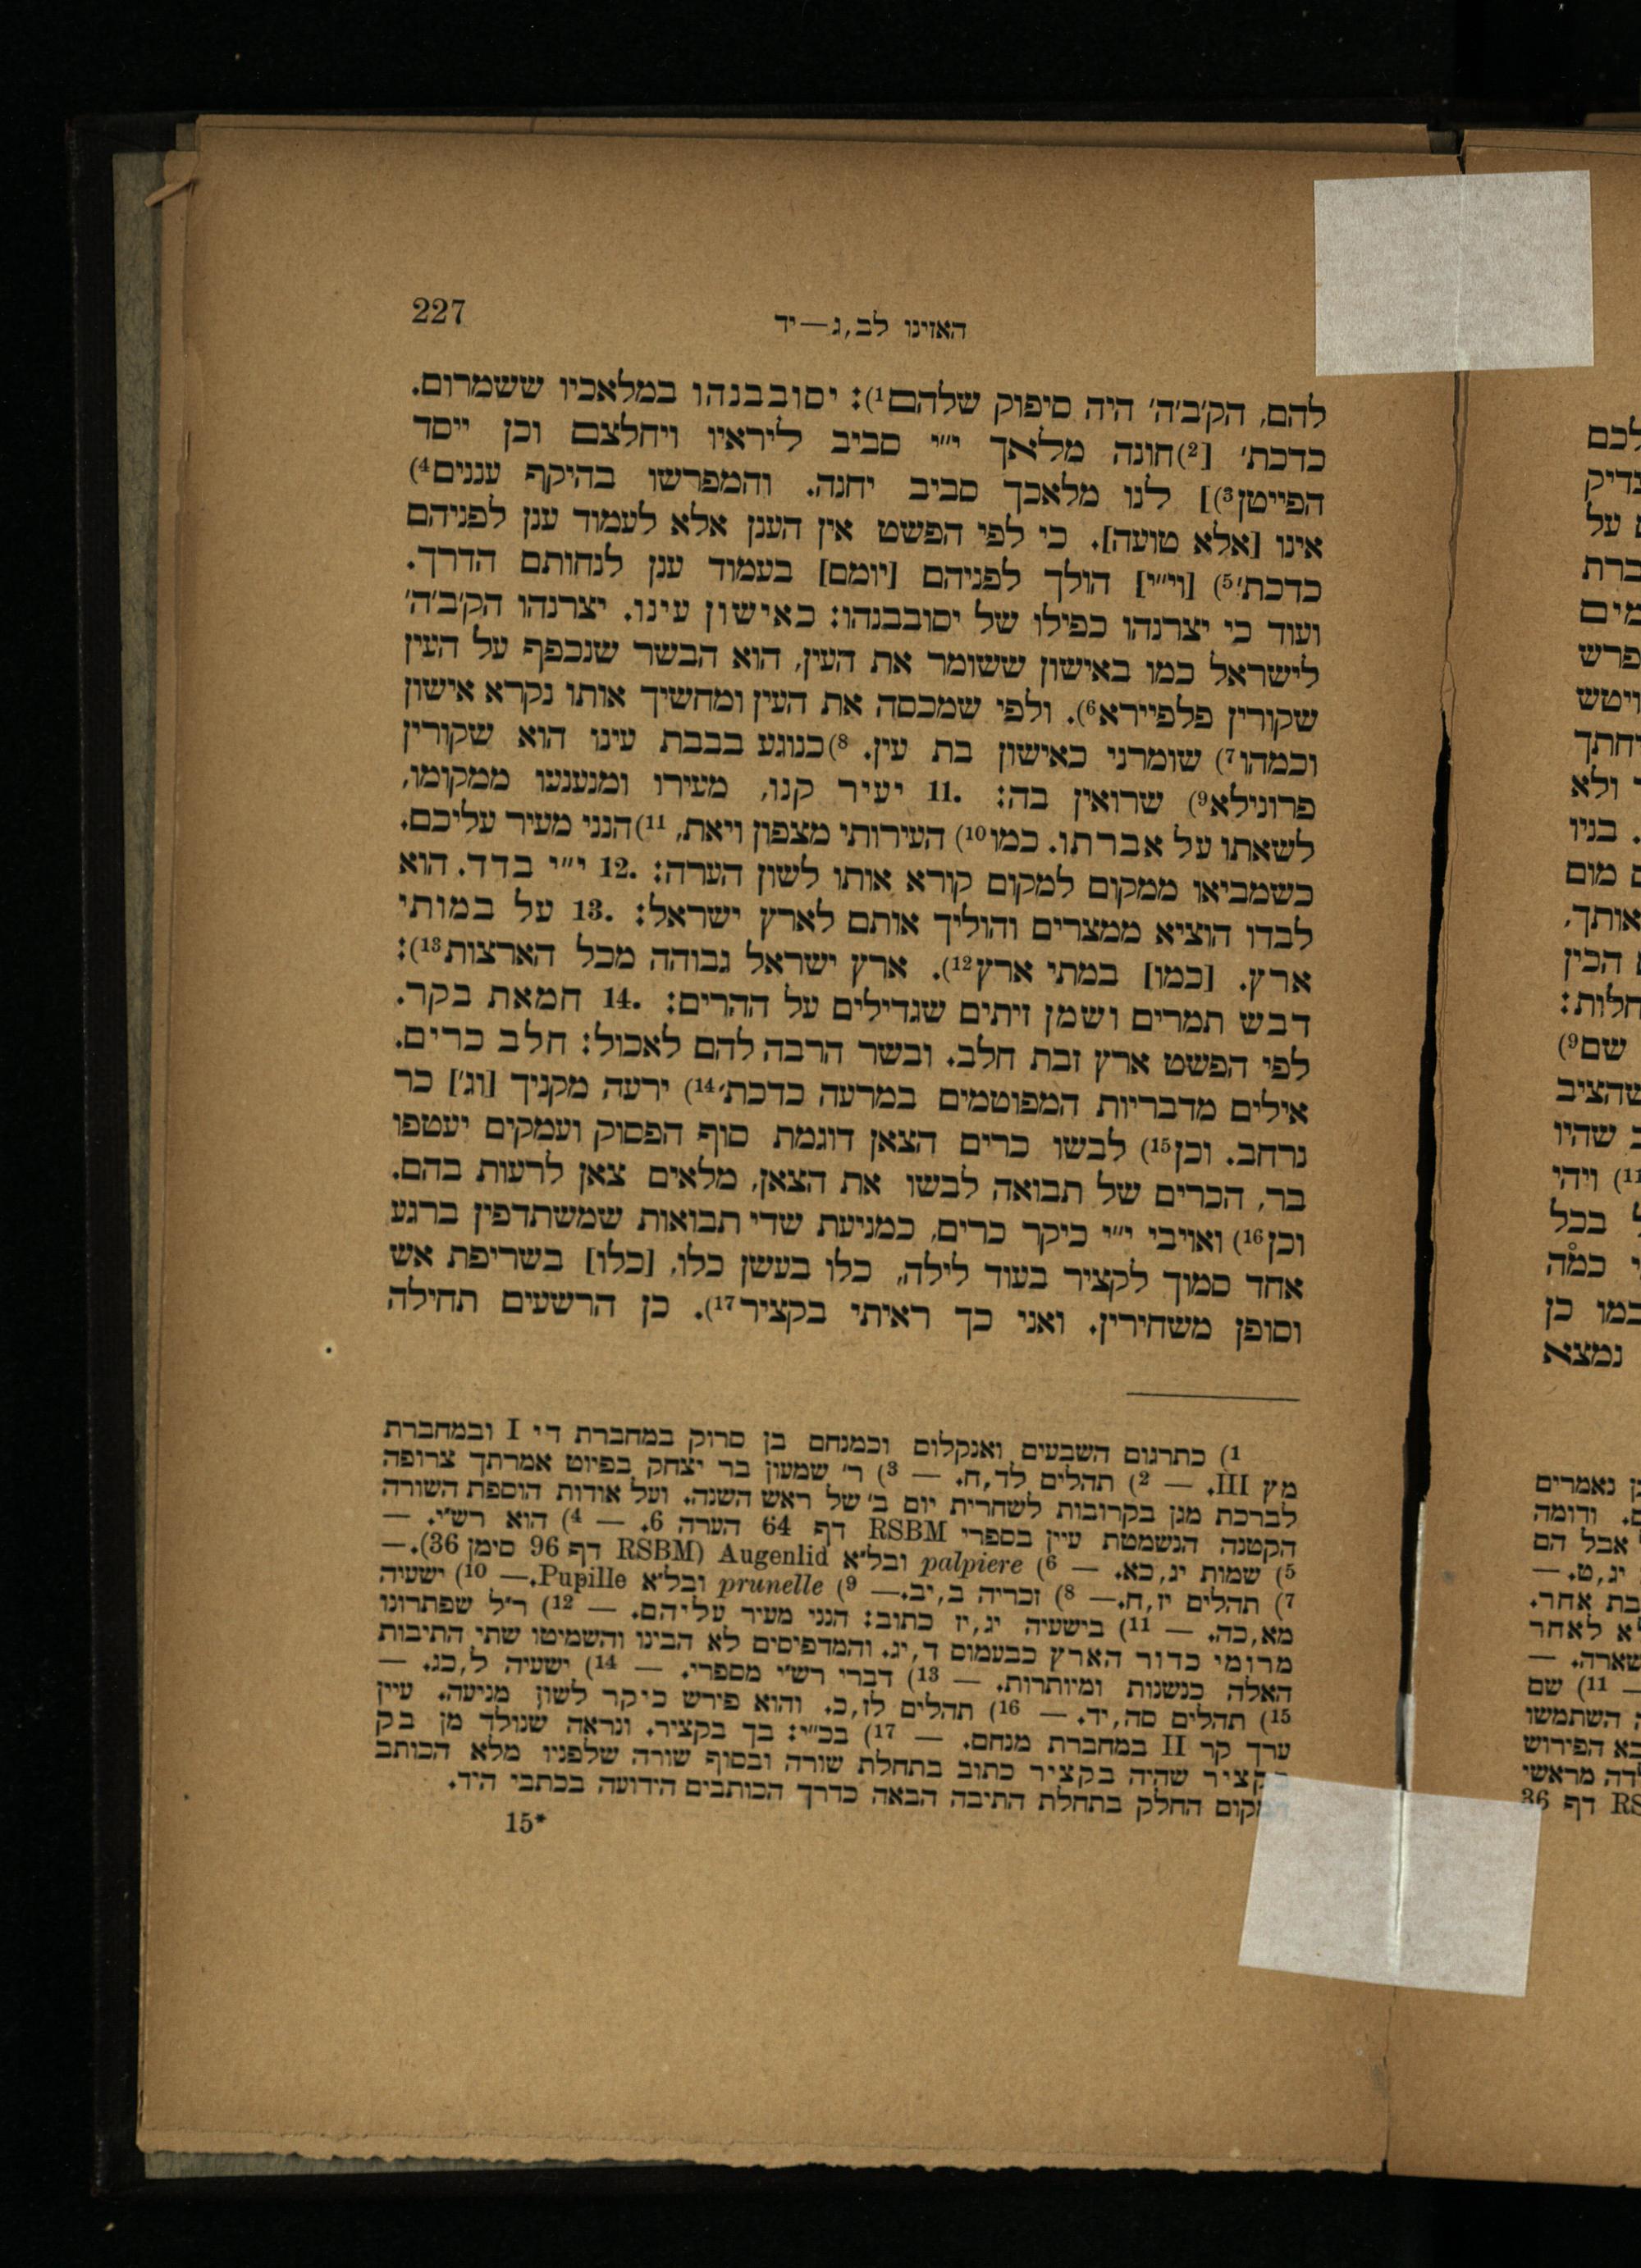 האזינו לב,ג—יד 227
להם, הק׳ב׳ה׳ היה סיפוק שלהם¹): יסובבנהו במלאכיו ששמרום.
כדכת׳ [²)חונה מלאך י״י סביב ליראיו ויחלצם וכן ייסד
הפייטן³)] לנו מלאכך סביב יחנה. והמפרשו בהיקף עננים⁴)
אינו [אלא טועה]. כי לפי הפשט אין הענן אלא לעמוד ענן לפניהם
כדכת׳⁵) [וי״י] הולך לפניהם [יומם] בעמוד ענן לנחותם הדרך.
ועוד כי יצרנהו כפילו של יסובבנהו: כאישון עינו. יצרנהו הק׳ב׳ה׳
לישראל כמו באישון ששומר את העין, הוא הבשר שנכפף על העין
שקורין פלפיירא⁶). ולפי שמכסה את העין ומחשיך אותו נקרא אישון
וכמהו⁷) שומרני כאישון בת עין. ⁸)כנוגע בבבת עינו הוא שקורין
פרונילא⁹) שרואין בה: 11. יעיר קנו, מעירו ומנענעו ממקומו,
לשאתו על אברתו. כמו¹⁰) העירותי מצפון ויאת, ¹¹)הנני מעיר עליכם.
כשמביאו ממקום למקום קורא אותו לשון הערה: 12. י״י בדד. הוא
לבדו הוציא ממצרים והוליך אותם לארץ ישראל: 13. על במותי
ארץ. [כמו] במתי ארץ¹²). ארץ ישראל גבוהה מכל הארצות¹³):
דבש תמרים ושמן זיתים שגדילים על ההרים: 14. חמאת בקר.
לפי הפשט ארץ זבת חלב. ובשר הרבה להם לאכול: חלב כרים.
אילים מדבריות המפוטמים במרעה כדכת׳¹⁴) ירעה מקניך [וג׳] כר
נרחב. וכן¹⁵) לבשו כרים הצאן דוגמת סוף הפסוק ועמקים יעטפו
בר, הכרים של תבואה לבשו את הצאן, מלאים צאן לרעות בהם.
וכן¹⁶) ואויבי י״י כיקר כרים, כמניעת שדי תבואות שמשתדפין ברגע
אחד סמוך לקציר בעוד לילה, כלו בעשן כלו, [כלו] בשריפת אש
וסופן משחירין. ואני כך ראיתי בקציר¹⁷). כן הרשעים תחילה
¹) כתרגום השבעים ואנקלום וכמנחם בן סרוק במחברת די I ובמחברת
מץ III. — ²) תהלים לד,ח. — ³) ר׳ שמעון בר יצחק בפיוט אמרתך צרופה
לברכת מגן בקרובות לשחרית יום ב׳ של ראש השנה. ועל אודות הוספת השורה
הקטנה הנשמטת עיין בספרי RSBM דף 64 הערה 6. — ⁴) הוא רש״י. —
⁵) שמות יג,כא. — ⁶) palpiere ובל״א Augenlid (RSBM דף 96 סימן 36).—
⁷) תהלים יז,ח.— ⁸) זכריה ב,יב.— ⁹) prunelle ובל״א Pupille.— ¹⁰) ישעיה
מא,כה. — ¹¹) בישעיה יג,יז כתוב: הנני מעיר עליהם. — ¹²) ר״ל שפתרונו
מרומי כדור הארץ כבעמוס ד,יג. והמדפיסים לא הבינו והשמיטו שתי התיבות
האלה כנשנות ומיותרות. — ¹³) דברי רש״י מספרי. — ¹⁴) ישעיה ל,כג. —
¹⁵) תהלים סה,יד. — ¹⁶) תהלים לז,כ. והוא פירש כיקר לשון מניעה. עיין
ערך קר II במחברת מנחם. — ¹⁷) בכ״י: בך בקציר. ונראה שנולד מן בק
קציר שהיה בקציר כתוב בתחלת שורה ובסוף שורה שלפניו מלא הכותב
מקום החלק בתחלת התיבה הבאה כדרך הכותבים הידועה בכתבי היד.
15*
לכם
צדיק
על
ברת
מים
פרש
ויטש
ולא
בניו
מום
אותך,
הכין
חלות:
שם⁹)
שהציב
שהיו
¹¹) ויהי
בכל
כמה
כמו כן
נמצא
נאמרים
ודומה
אבל הם
יג,ט. —
בת אחר.
לא לאחר
שארה. —
— ¹¹) שם
השתמשו
בא הפירוש
מראשי
RS דף 36